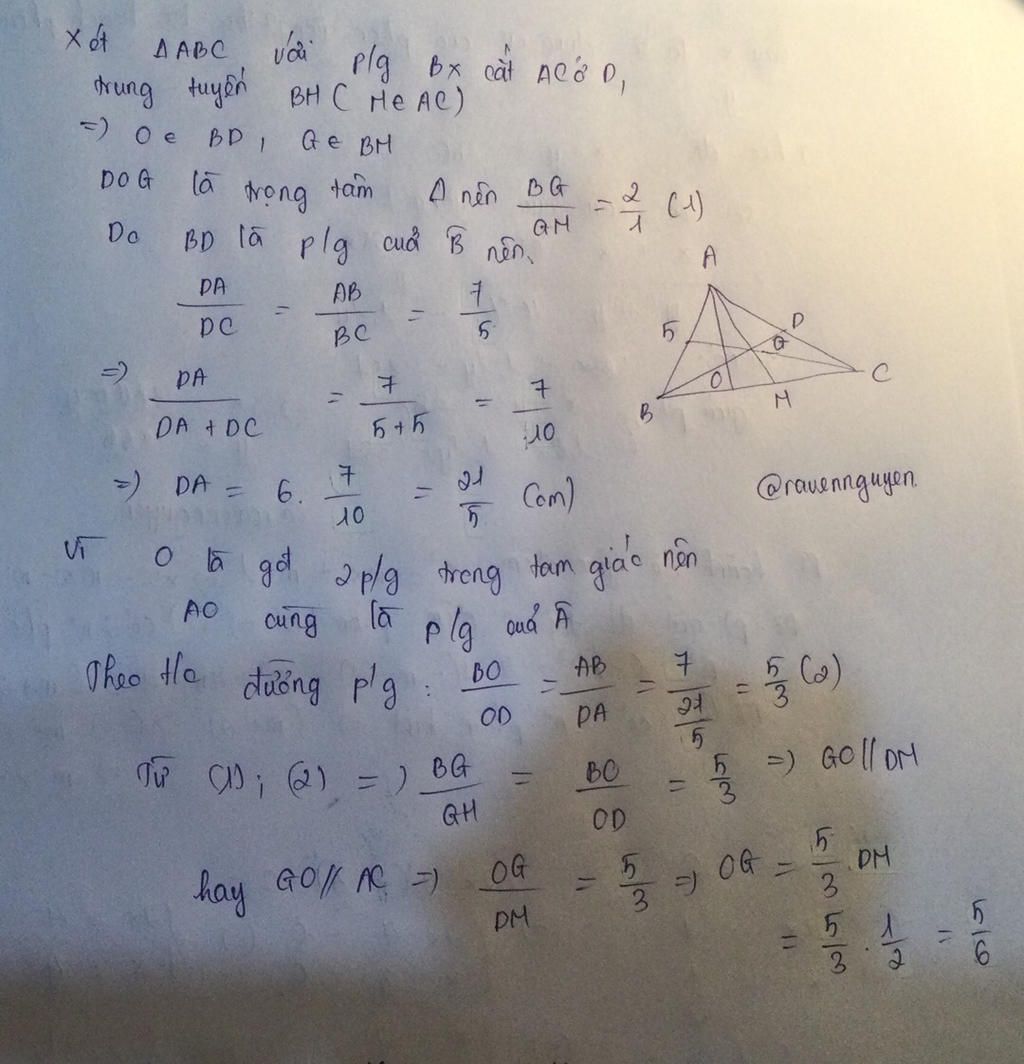 Xét ΔABC, với p/g Bx cắt AC ở D,
trung tuyến BM ( M ∈ AC)
=) O ∈ BD, G ∈ BM
Do G là trọng tâm Δ nên BG/GM = 2/1 (1)
Do BD là p/g cuả B̂ nên
DA/DC = AB/BC = 7/5
=) DA/(DA + DC) = 7/(5+5) = 7/10
=) DA = 6. 7/10 = 21/5 (cm)
A
5
D
G
O
C
B
M
@ravennguyen
Vì O là gđ 2 p/g trong tam giác nên
AO cũng là p/g cuả Â
Theo t/c đường p/g : BO/OD = AB/DA = 7/(21/5) = 5/3 (2)
Từ (1) ; (2) =) BG/GM = BO/OD = 5/3 =) GO // DM
hay GO // AC =) OG/DM = 5/3 =) OG = 5/3 . DM
= 5/3 . 1/2 = 5/6